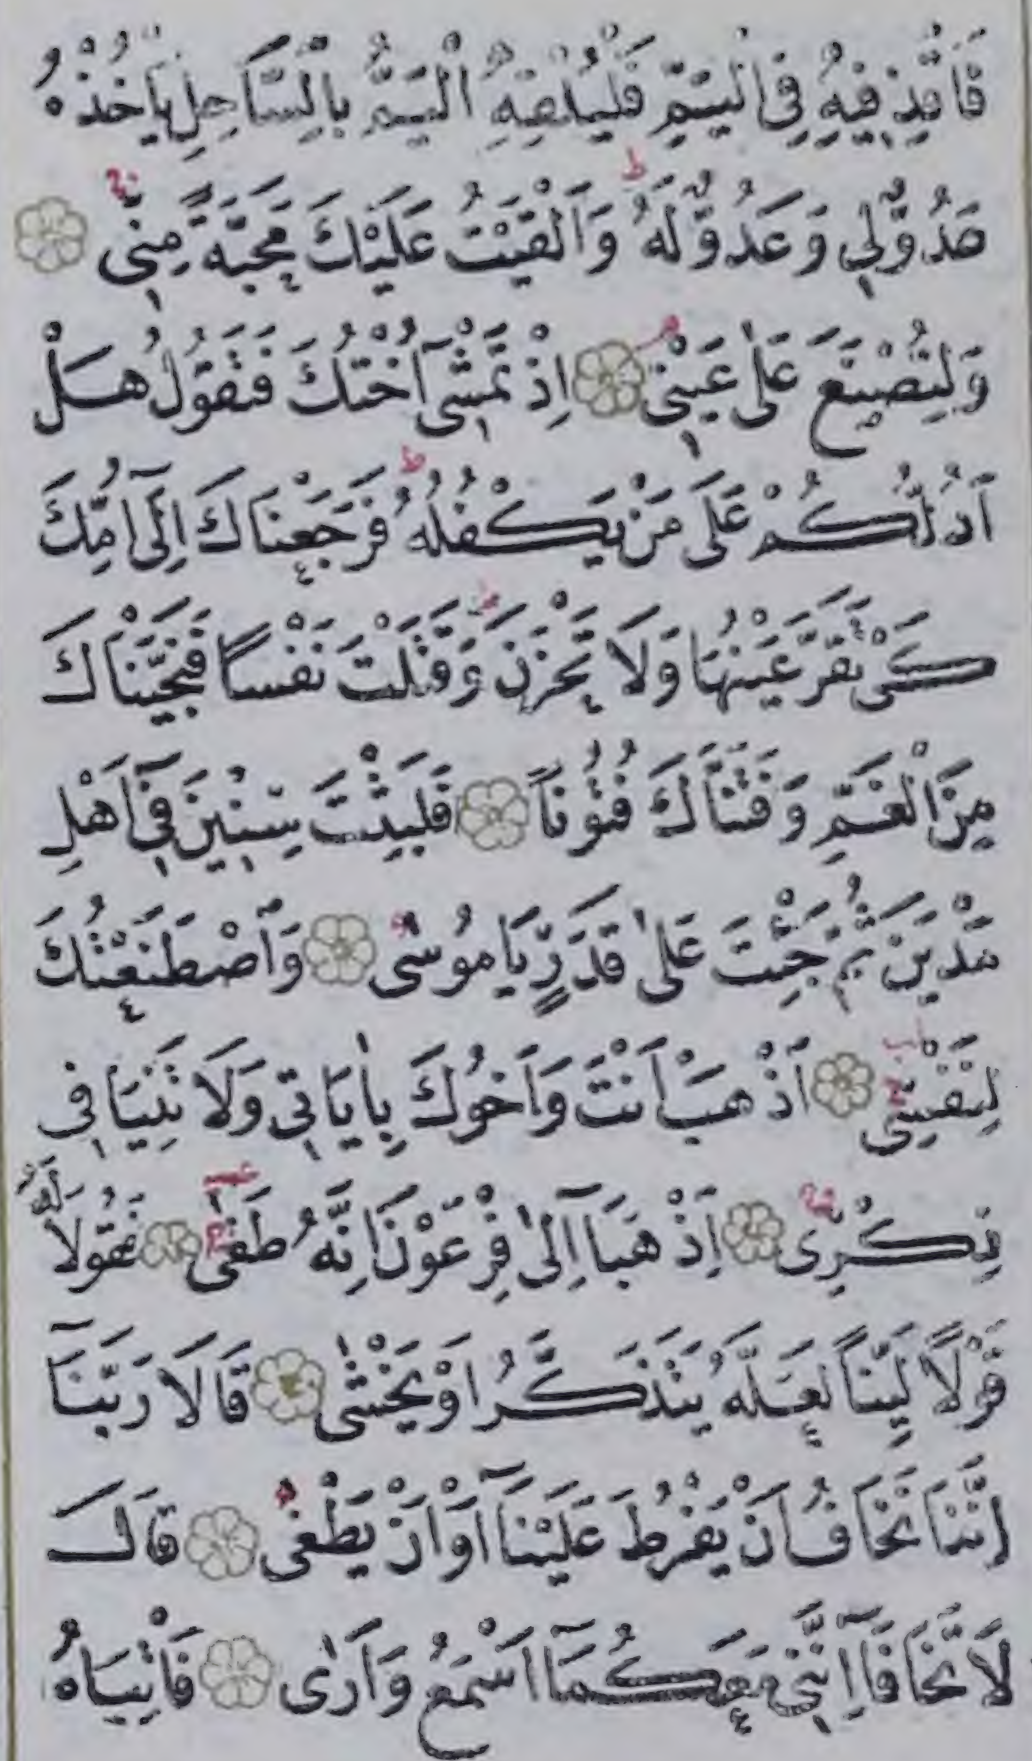 فَاقْذِفِيهِ فِي الْيَمِّ فَلْيُلْقِهِ الْيَمُّ بِالسَّاحِلِ يَأْخُذْهُ
عَدُوٌّ لِي وَعَدُوٌّ لَهُ وَاَلْقَيْتُ عَلَيْكَ مَحَبَّةً مِنِّي
وَلِتُصْنَعَ عَلٰى عَيْنِي اِذْ تَمْشِٓي اُخْتُكَ فَتَقُولُ هَلْ
اَدُلُّكُمْ عَلَى مَنْ يَكْفُلُهُ فَرَجَعْنَاكَ اِلٰٓى اُمِّكَ
كَيْ تَقَرَّ عَيْنُهَا وَلَا تَحْزَنَ وَقَتَلْتَ نَفْسًا فَنَجَّيْنَاكَ
مِنَ الْغَمِّ وَفَتَنَّاكَ فُتُونًا فَلَبِثْتَ سِنِينَ فِٓي اَهْلِ
مَدْيَنَ ثُمَّ جِئْتَ عَلٰى قَدَرٍ يَا مُوسٰى وَاصْطَنَعْتُكَ
لِنَفْسِي اِذْهَبْ اَنْتَ وَاَخُوكَ بِاٰيَاتِي وَلَا تَنِيَا فِي
ذِكْرِي اِذْهَبَٓا اِلٰى فِرْعَوْنَ اِنَّهُ طَغٰى فَقُولَا لَهُ
قَوْلًا لَيِّنًا لَعَلَّهُ يَتَذَكَّرُ اَوْ يَخْشٰى قَالَا رَبَّنَٓا
اِنَّنَا نَخَافُ اَنْ يَفْرُطَ عَلَيْنَٓا اَوْ اَنْ يَطْغٰى قَالَ
لَا تَخَافَٓا اِنَّنِي مَعَكُمَٓا اَسْمَعُ وَاَرٰى فَأْتِيَاهُ